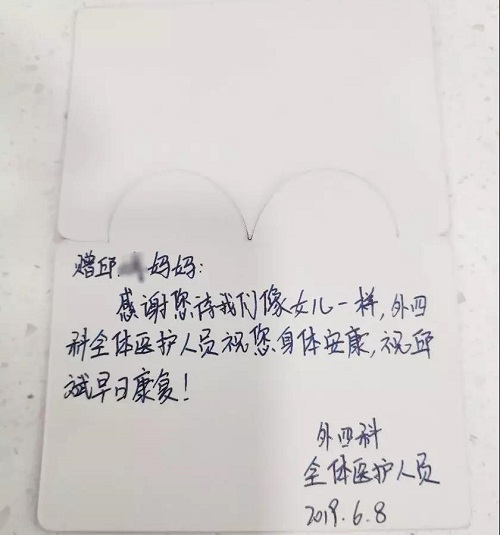 赠邱 妈妈:
感谢您待我们像女儿一样,外四
科全体医护人员祝您身体安康,祝邱
斌早日康复!
外四科
全体医护人员
2019.6.8